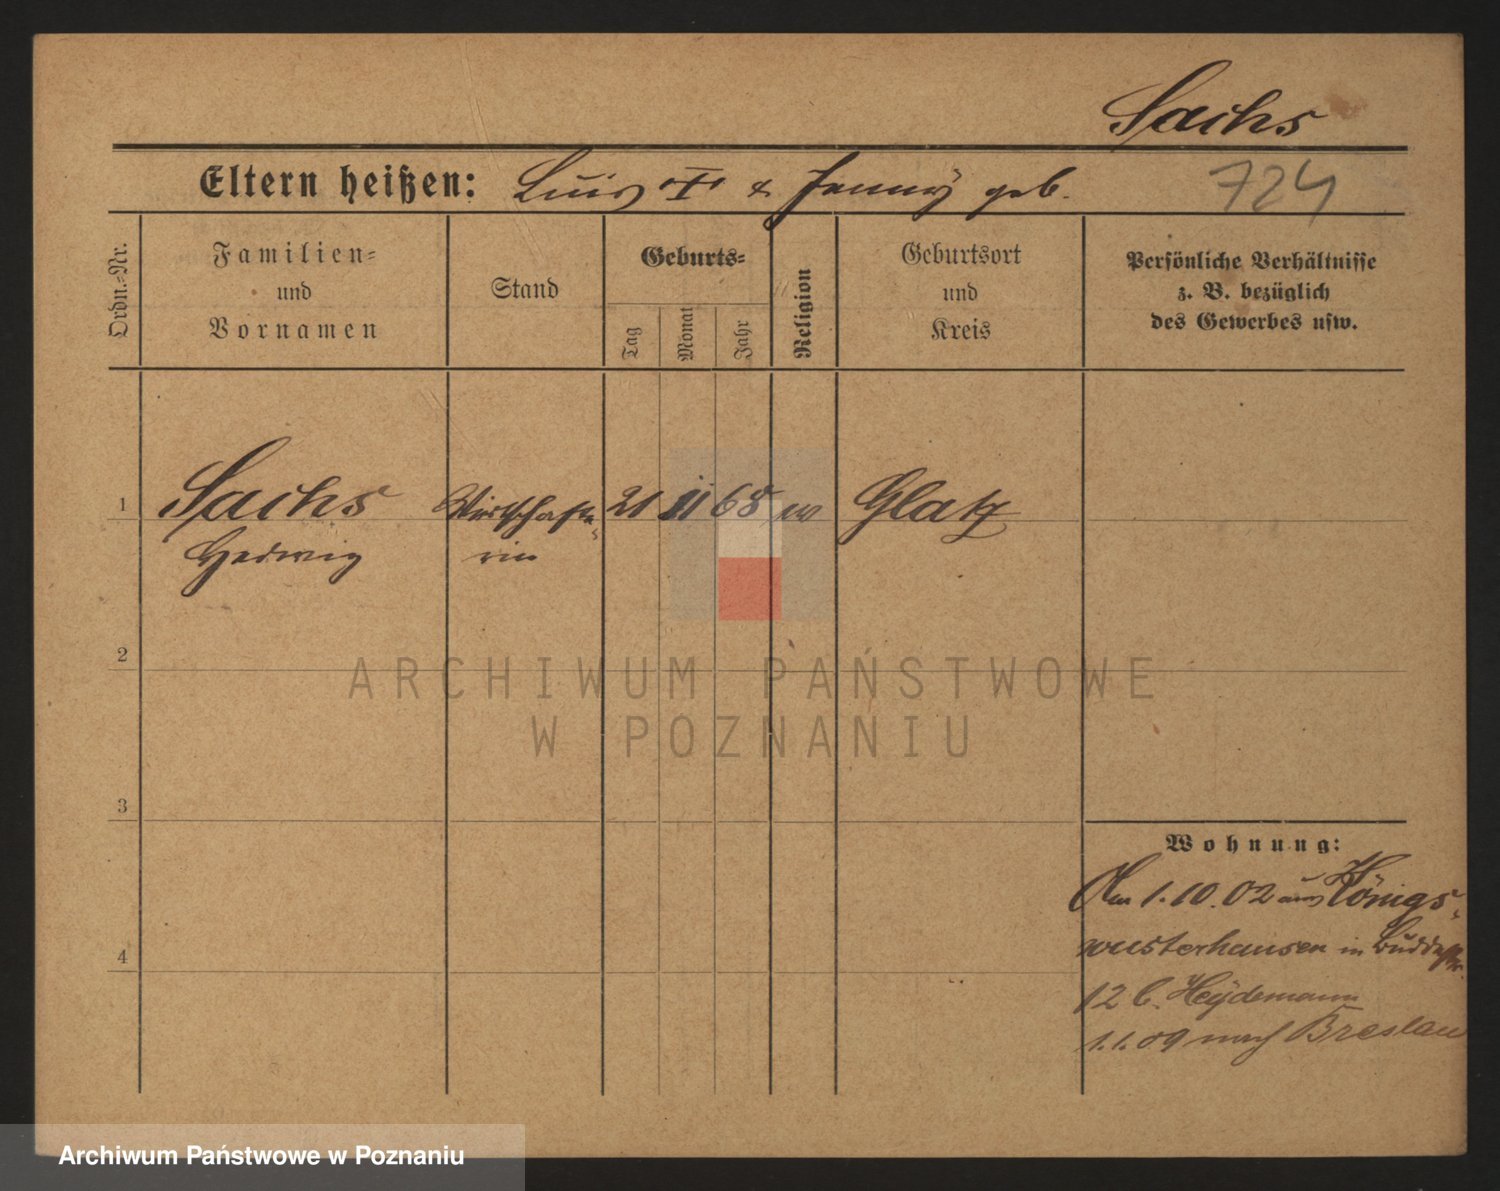 Sachs
Eltern heißen: Luis † & Jenny geb.
724
Ordn.=Nr.
Familien=
und
Vornamen
Stand
Geburts=
Tag
Monat
Jahr
Religion
Geburtsort
und
Kreis
Persönliche Verhältnisse
z. B. bezüglich
des Gewerbes usw.
1 Sachs Wirtschafte- 21 11 68 Glatz
Hedwig rin
2
3
4
Wohnung:
Am 1.10.02 aus Königs-
wusterhausen in Buddestr.
12 b. Heydemann
1.1.09 nach Breslau
ARCHIWUM PAŃSTWOWE
W POZNANIU
Archiwum Państwowe w Poznaniu